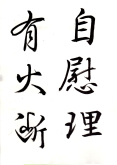 自慰理
有火